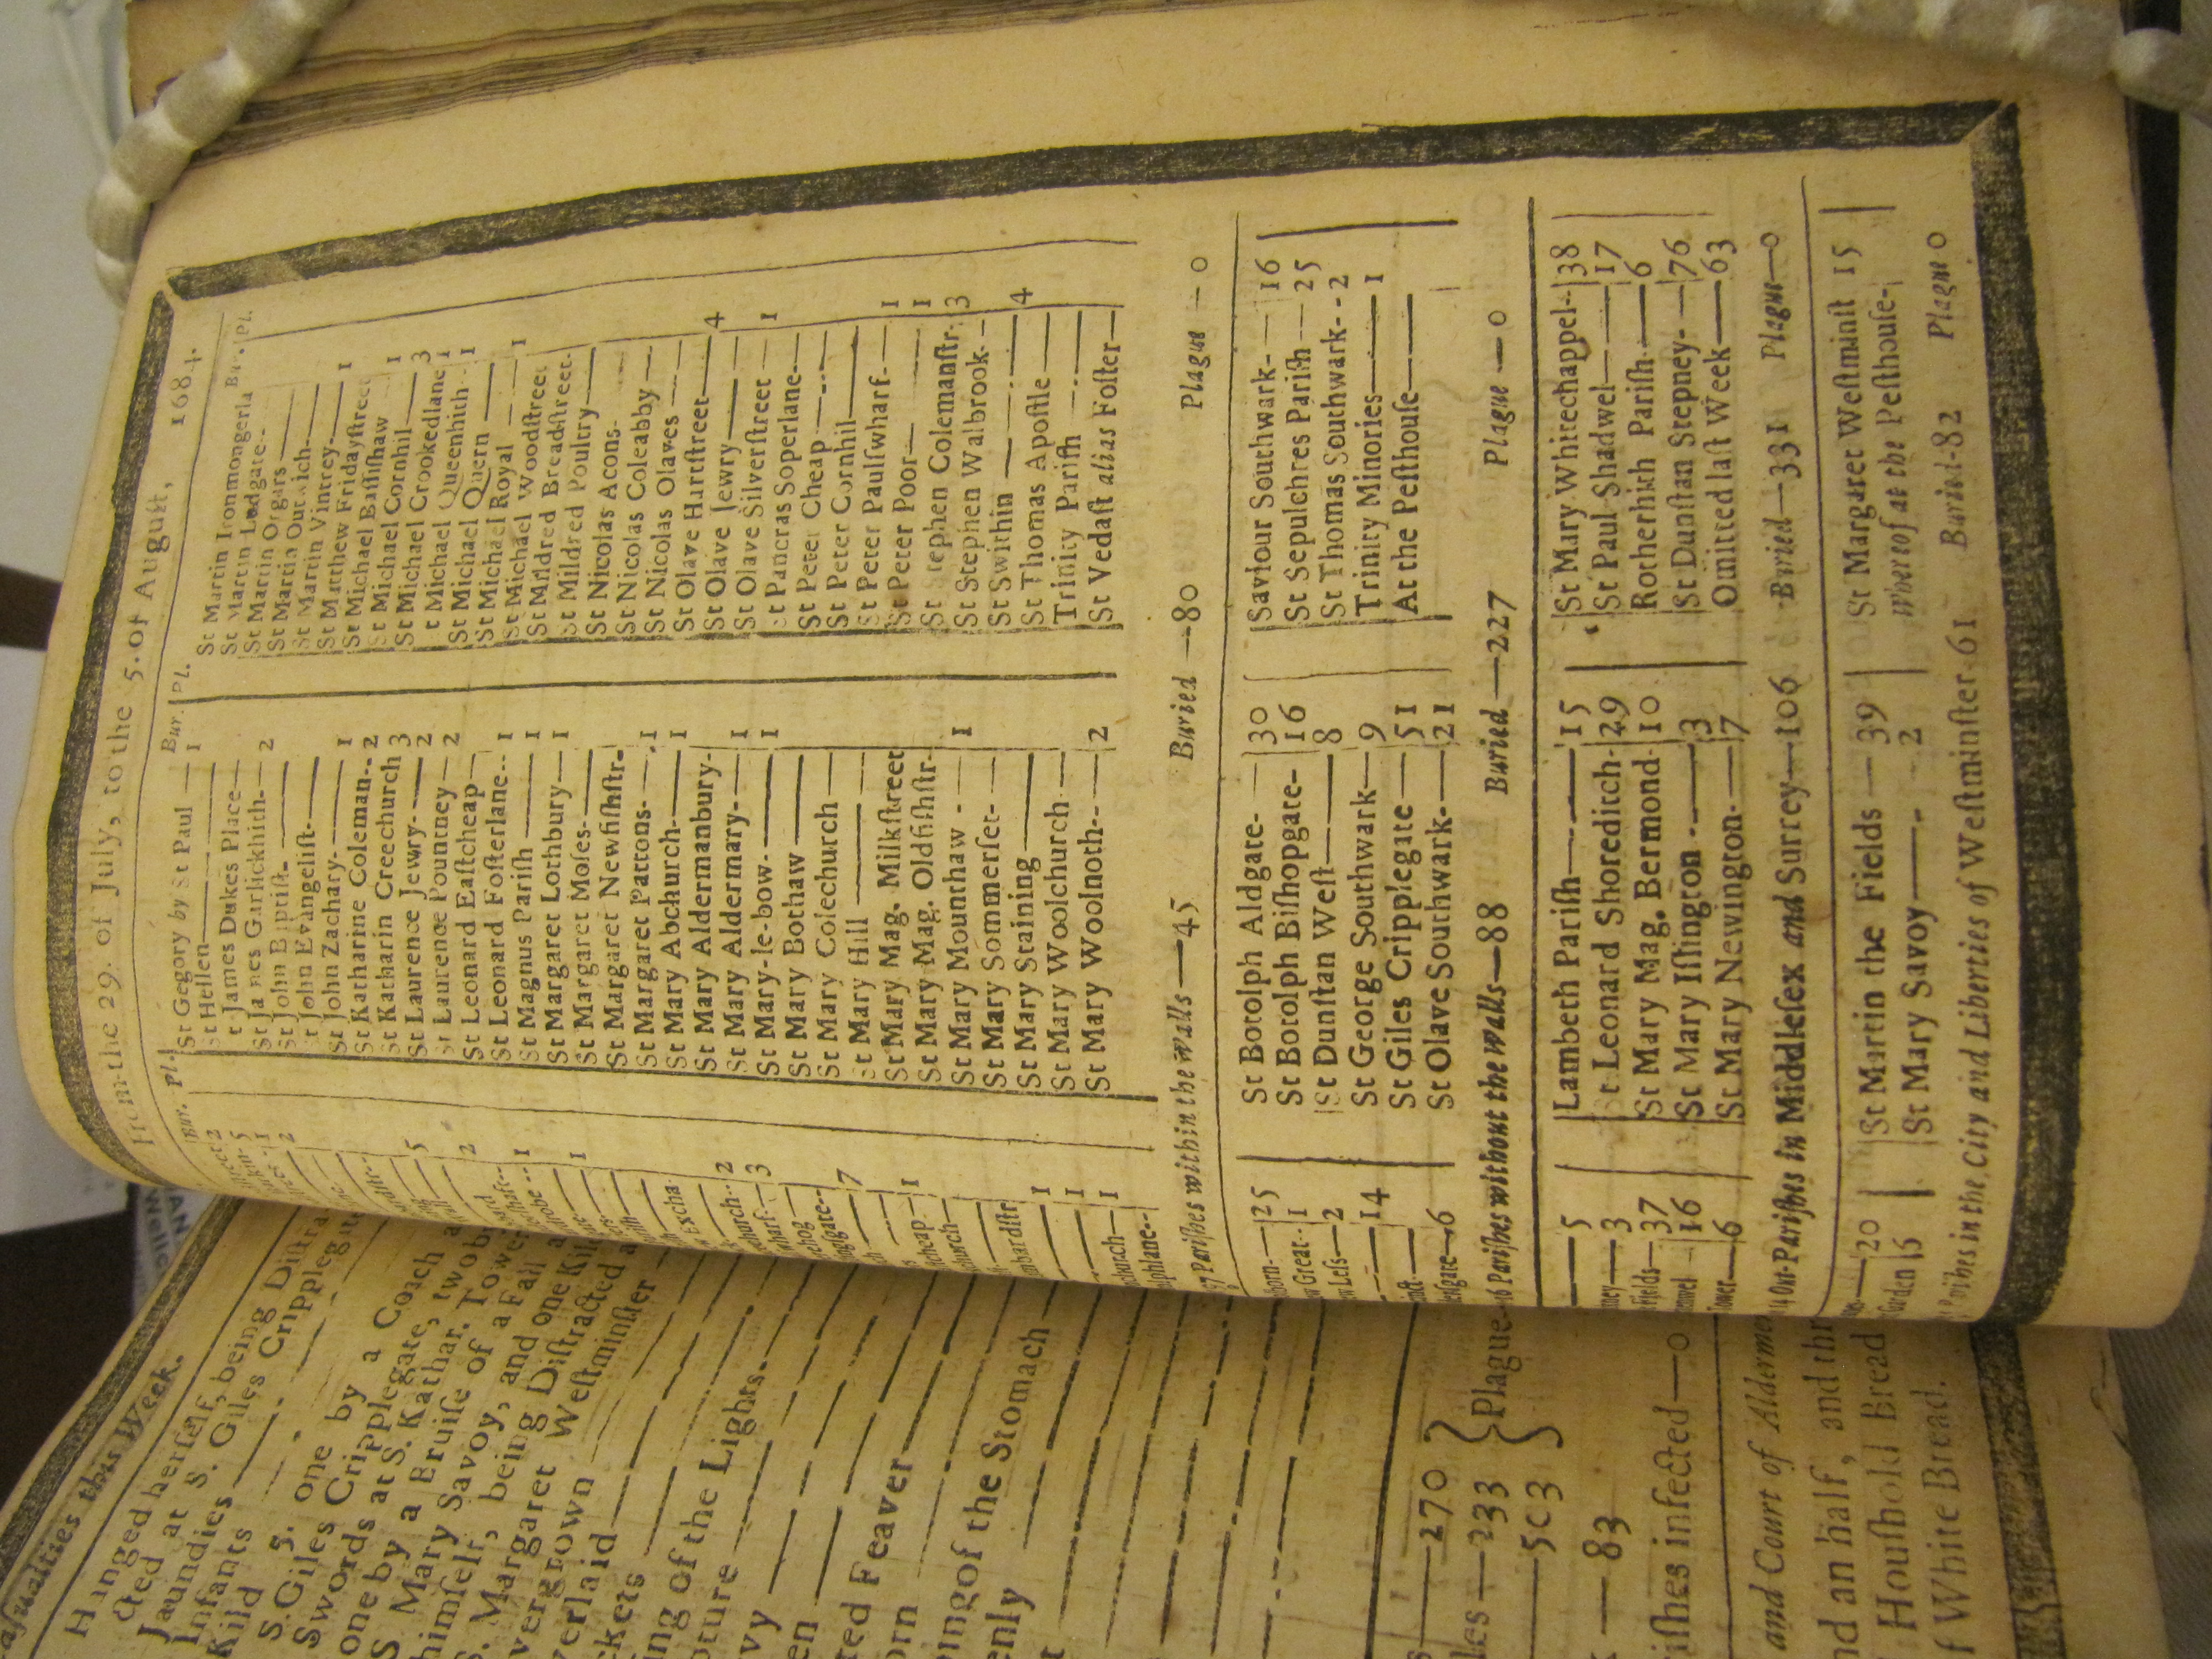 From the 29. of July, to the 5. of August, 1684.
Bur. Pl.
St Gegory by St Paul — 1
St Hellen
St James Dukes Place
St James Garlickhith — 2
St John Biptist
St John Evangelist
St John Zachary — 1
St Katharine Coleman — 2
St Katharin Creechurch 3
St Laurence Jewry — 2
St Laurence Pountney — 2
St Leonard Eastcheap
St Leonard Fosterlane — 1
St Magnus Parish — 1
St Margaret Lothbury — 1
St Margaret Moses
St Margaret Newfishstr
St Margaret Pattons — 1
St Mary Abchurch — 1
St Mary Aldermanbury
St Mary Aldermary — 1
St Mary-le-bow — 1
St Mary Bothaw
St Mary Colechurch
St Mary Hill
St Mary Mag. Milkstreet
St Mary Mag. Oldfishstr
St Mary Mounthaw — 1
St Mary Sommerset
St Mary Staining
St Mary Woolchurch
St Mary Woolnoth — 2
Bur. Pl.
St Martin Ironmongerla
St Martin Ludgate
St Martin Orgars
St Martin Outwich
St Martin Vintrey — 1
St Matthew Fridaystreet
St Michael Bassishaw — 1
St Michael Cornhil — 3
St Michael Crookedlane 1
St Michael Queenhith — 1
St Michael Quern
St Michael Royal — 1
St Michael Woodstreet
St Mildred Breadstreet
St Mildred Poultry
St Nicolas Acons
St Nicolas Coleabby
St Nicolas Olaves
St Olave Hartstreet — 4
St Olave Jewry
St Olave Silverstreet — 1
St Pancras Soperlane
St Peter Cheap
St Peter Cornhil
St Peter Paulswharf — 1
St Peter Poor — 1
St Stephen Colemanstr. 3
St Stephen Walbrook
St Swithin — 4
St Thomas Apostle
Trinity Parish
St Vedast alias Foster
97 Parishes within the walls — 45 Buried — 80 Plague — 0
St Botolph Aldgate — 30
St Botolph Bishopgate — 16
St Dunstan West — 8
St George Southwark — 9
St Giles Cripplegate — 51
St Olave Southwark — 21
Saviour Southwark — 16
St Sepulchres Parish — 25
St Thomas Southwark — 2
Trinity Minories — 1
At the Pesthouse
16 Parishes without the walls — 88 Buried — 227 Plague — 0
Lambeth Parish — 15
St Leonard Shoreditch — 29
St Mary Mag. Bermond. 10
St Mary Islington — 3
St Mary Newington — 7
St Mary Whitechappel — 38
St Paul Shadwel — 17
Rotherhith Parish — 6
St Dunstan Stepney — 76
Omitted last Week — 63
14 Out-Parishes in Middlesex and Surrey — 106 Buried — 331 Plague — 0
St Martin the Fields — 39
St Mary Savoy — 2
St Margaret Westminst 15
Whereof at the Pesthouse
Parishes in the City and Liberties of Westminster 61 Buried-82 Plague 0
Casualties this Week.
Hanged herself, being Distra
cted at S. Giles Cripplegate
Jaundies
Infants
Kild 5. one by a Coach a
S. Giles Cripplegate, two by
Swords at S. Kathar. Tower
one by a Bruise of a Fall a
S Mary Savoy, and one Kil
himself, being Distracted a
S. Margaret Westminster
vergrown
verlaid
ckets
ing of the Lights
pture
vy
en
ted Feaver
orn
ping of the Stomach
enly
270
233
503
Plague
83
ishes infected — 0
and Court of Aldermen
nd an half, and thr
Houshold Bread
f White Bread.